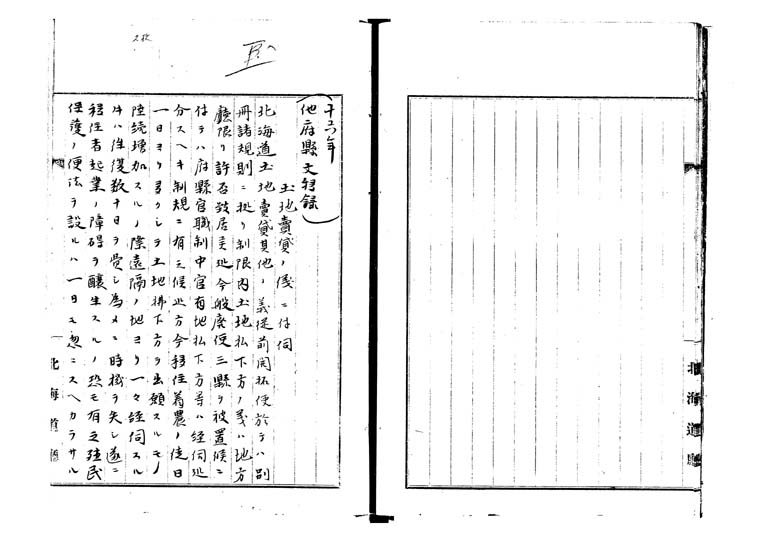 十六年
他府縣文移録
土地賣貸ノ儀ニ付伺
北海道土地賣貸其他ノ義從前開拓使於テハ別
冊諸規則ニ拠リ制限内土地払下方ノ義ハ地方
廳限リ許否致居候処今般廃使三縣ヲ被置候ニ
付テハ府縣官職制中官有地払下方等ハ経伺処
分スヘキ制規ニ有之候処方今移住為農ノ徒日
一日ヨリ多クシテ土地拂下方ヲ出願スルモノ
陸続増加スルノ際遠隔ノ地ヨリ一々経伺スル
トキハ往復数十日ヲ費シ為メニ時機ヲ失シ遂ニ
移住者起業ノ障碍ヲ醸生スルノ恐モ有之殖民
保護ノ便法ヲ設ルハ一日モ忽ニスヘカラサル
北海道廳
北海道廳